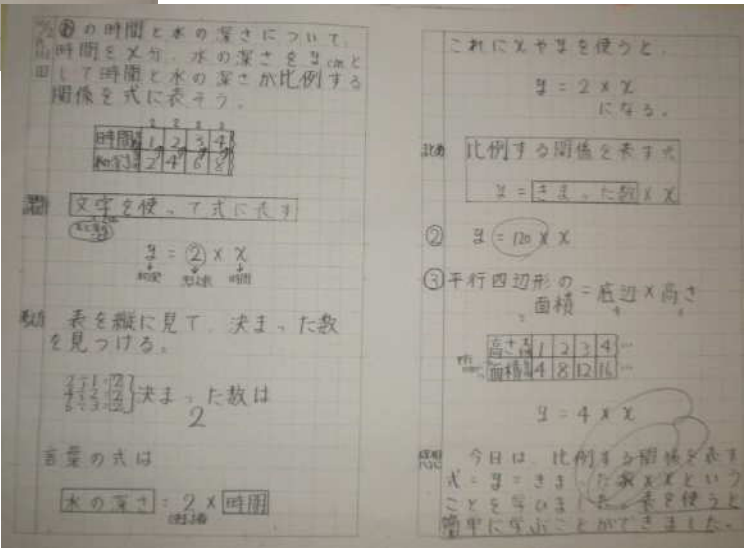 の時間と水の深さについて、
時間をx分、水の深さをycmと
して時間と水の深さが比例する
関係を式に表そう。
2 2 2 2
時間 1 2 3 4
2 4 6 8
文字を使って式に表す
y = 2 × x
時間
表を縦に見て、決まった数
を見つける。
2÷1=2
4÷2=2
6÷3=2
決まった数は
2
言葉の式は
水の深さ = 2 × 時間
これにxやyを使うと、
y = 2 × x
になる。
まとめ 比例する関係を表す式
y = きまった数 × x
② y = 120 × x
③ 平行四辺形の
面積 = 底辺 × 高さ
高さ 1 2 3 4 …
面積 4 8 12 16 …
y = 4 × x
今日は、比例する関係を表す
式=y=きまった数×xという
ことを学びました。表を使うと
簡単に学ぶことができました。